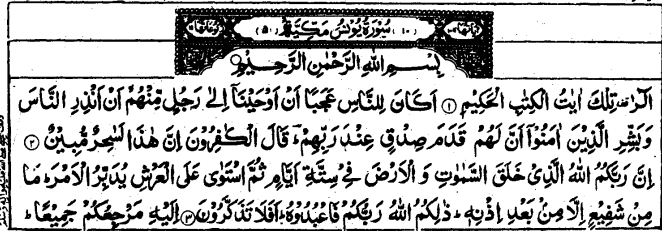 (۱۰) سُوْرَةُ يُوْنُسَ مَكِّيَّةٌ (۵۱)
بِسْمِ اللهِ الرَّحْمٰنِ الرَّحِيْمِ
الٓرٰ تِلْكَ اٰيٰتُ الْكِتٰبِ الْحَكِيْمِ ۝۱ اَكَانَ لِلنَّاسِ عَجَبًا اَنْ اَوْحَيْنَاۤ اِلٰى رَجُلٍ مِّنْهُمْ اَنْ اَنْذِرِ النَّاسَ
وَبَشِّرِ الَّذِيْنَ اٰمَنُوْۤا اَنَّ لَهُمْ قَدَمَ صِدْقٍ عِنْدَ رَبِّهِمْ ؕ قَالَ الْكٰفِرُوْنَ اِنَّ هٰذَا لَسٰحِرٌ مُّبِيْنٌ ۝۲
اِنَّ رَبَّكُمُ اللهُ الَّذِيْ خَلَقَ السَّمٰوٰتِ وَ الْاَرْضَ فِيْ سِتَّةِ اَيَّامٍ ثُمَّ اسْتَوٰى عَلَى الْعَرْشِ يُدَبِّرُ الْاَمْرَ ؕ مَا
مِنْ شَفِيْعٍ اِلَّا مِنْۢ بَعْدِ اِذْنِهٖ ؕ ذٰلِكُمُ اللهُ رَبُّكُمْ فَاعْبُدُوْهُ ؕ اَفَلَا تَذَكَّرُوْنَ ۝۳ اِلَيْهِ مَرْجِعُكُمْ جَمِيْعًا ؕ